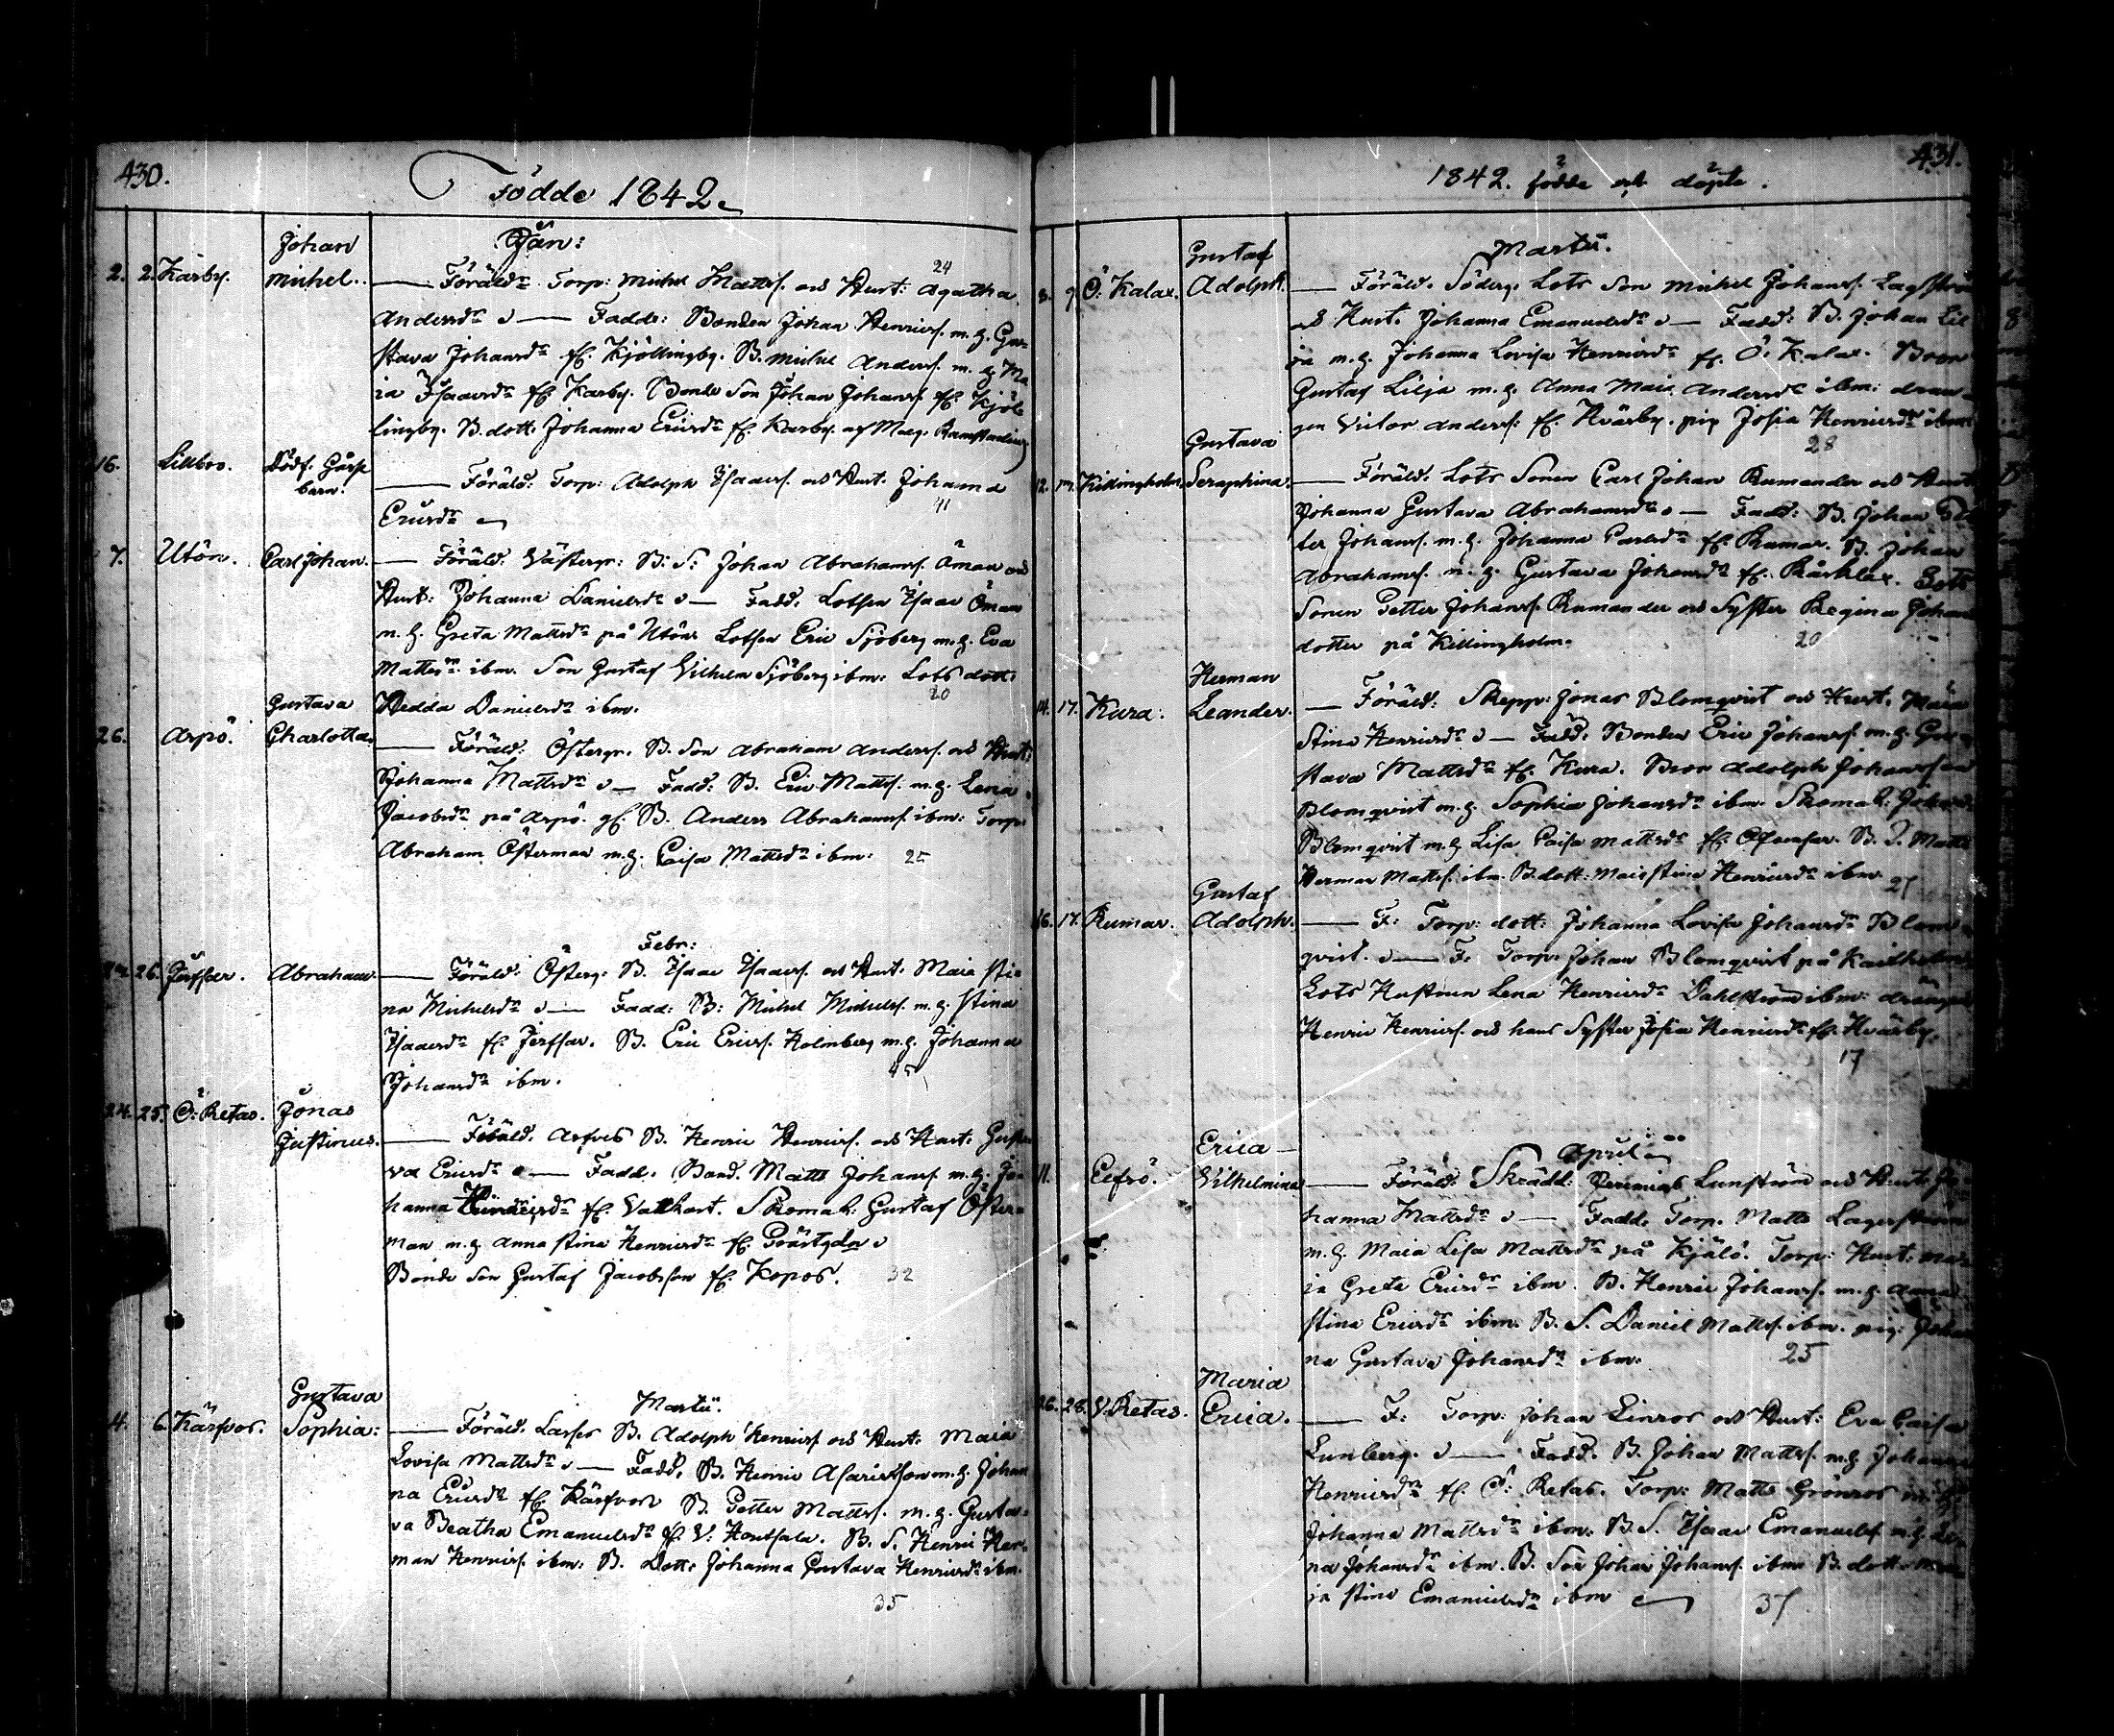 430.
Födde 1842.
Jan:
Johan
2. 2. Kårby. Michel. — Föräld: Torp: Michel Mattss. och Hust: Agatha 24
Andersdr — Fadd: Bonden Johan Henricss. m. h. Gu-
stava Johansdr fr. Kjöllingby. B. Michel Anderss. m. h. Ma
ia Isaacsdr fr. Karby. Bonde Son Johan Johanss. fr. Kjöl
lingby. B. dott. Johanna Ericsdr fr. Karby. af Mag.
16. Lillbro. Dödf. Gåsse
barn. — Föräld: Torp: Adolph Isaacss. och Hust: Johanna
Ericsdr 41
7. Utön. Carl Johan. — Föräld. Västergr: B: S: Johan Abrahamss. Öman och
Hust: Johanna Danielsdr — Fadd. Lotsen Isaac Öman
m. h. Greta Mattsdr på Utön. Lotsen Eric Sjöberg m. h. Eva
Mattsdr ibm. Son Gustaf Vilhelm Sjöberg ibm: Lots dott:
Hedda Danielsdr ibm. 20
Gustava
26. Arpö. Charlotta. — Föräld: Östergr. B. Son Abraham Anderss. och Hust:
Johanna Mattsdr — Fadd: B. Eric Mattss. m. h. Lena
Jacobsdr på Arpö. B. Anders Abrahamss. ibm: Torp:
Abraham Österman m. h. Caisa Mattsdr ibm: 25
Febr:
26. Abraham. — Föräld. Österg: B. Isaac Isaacss. och Hust. Maia Sti-
na Michelsdr — Fadd: B: Michel Michelss. m. h. Stina
Isaacsdr fr. Jerfsar. B. Eric Ericss. Holmberg m. h. Johanna
Johansdr ibm. 45
24. 25. Ö: Retas. Jonas
Justinus. — Föräld. Arfvis B. Henric Henricss. och Hust: Gusta
va Ericsdr — Fadd. Bond. Matts Johanss. m. h. Jo-
hanna Henricsdr fr. Vallhart. Skomak: Gustaf Öster-
man m. h. Anna Stina Henricsdr fr. Prästgdn
Bonde Son Gustaf Jacobsson fr. Kopos. 32
Gustava
Martii.
4. 6. Kärfvos. Sophia: — Föräld. Lasses B. Adolph Henricss. och Hust. Maia
Lovisa Mattsdr — Fadd. B. Henric Asarietson m. h. Johan
na Ericsdr fr. Kärfvos B. Petter Mattss. m. h. Gusta-
va Beatha Emanuelsdr fr. V: Houtsala. B. S. Henric Her-
man Henricss. ibm: B. Dott: Johanna Gustava Henricsdr ibm.
35
431.
1842. födde och döpte.
Martii.
Gustaf
8. 9. Ö: Kalax. Adolph. — Föräld. Söderg. Lots Son Michel Johanss. Lagström
och Hust. Johanna Emanuelsdr — Fadd: B. Johan Lil
ja m. h. Johanna Lovisa Henricsdr fr. Ö: Kalax. Bror
Gustaf Lilja m. h. Anna Maia Andersdr ibm: drän-
gen Victor Anderss: fr. Kvärby. pig Josia Henricsdr ibm
28
Gustava
12. 17. Killingholm. Seraphina. — Föräld. Lots Sonen Carl Johan Rumander och Hust
Johanna Gustava Abrahamsdr — Fadd: B. Johan Pet
ter Johanss. m. h. Johanna Carlsdr fr. Rumar. B. Johan
Abrahamss. m. h. Gustava Johansdr fr. Lots
Sonen Petter Johanss. Rumander och Syster Regina Johans
dotter på Killingholm. 20
Herman
14. 17. Kura. Leander. — Föräld: Skepp: Jonas Blomqvist och Hust. Maia
Stina Henricsdr — Fadd. Bonden Eric Johanss. m. h. Gu
stava Mattsdr fr. Kura. Bror Adolph Johansson
Blomqvist m. h. Sophia Johansdr ibm. Skomak: Johan
Blomqvist m. h. Lisa Caisa Mattsdr fr. B. S. Matts
Herman Mattss. ibm. B. dott: Maia Stina Henricsdr ibm.
Gustaf
16. 17. Rumar. Adolph. — F: Torp: dott: Johanna Lovisa Johansdr Blom
qvist. — F. Torp. Johan Blomqvist på
Lots Hustrun Lena Henricsdr Dahlström ibm: drängen
Henric Henricss. och hans Syster Josia Henricsdr fr. Kvärby.
17
Aprill
Erica
11. Eefvö. Vilhelmina — Föräld. Skrädd: Jeremias Lunström och Hust: Jo
hanna Mattsdr — Fadd. Torp. Matts Lagerström
m. h. Maia Lisa Mattsdr på Kjälö. Torp: Hust: Ma
ia Greta Ericsdr ibm. B. Henric Johanss. m. h. Anna
Stina Ericsdr ibm. B. S. Daniel Mattss. ibm. pig: Johan
na Gustava Johansdr ibm. 25
Maria
26. 28. V. Retas. Erica. — F: Torp: Johan Linros och Hust: Eva Caisa
Lunberg. — Fadd. B. Johan Mattss. m. h. Johanna
Henricsdr fr. Ö: Retas. Torp: Matts Grönros m. h.
Johanna Mattsdr ibm. B. S. Isaac Emanuelss. m. h. Le-
na Johansdr ibm. B. Son Johan Johanss. ibm B. dott. Ma
ja Stina Emanuelsdr ibm 37